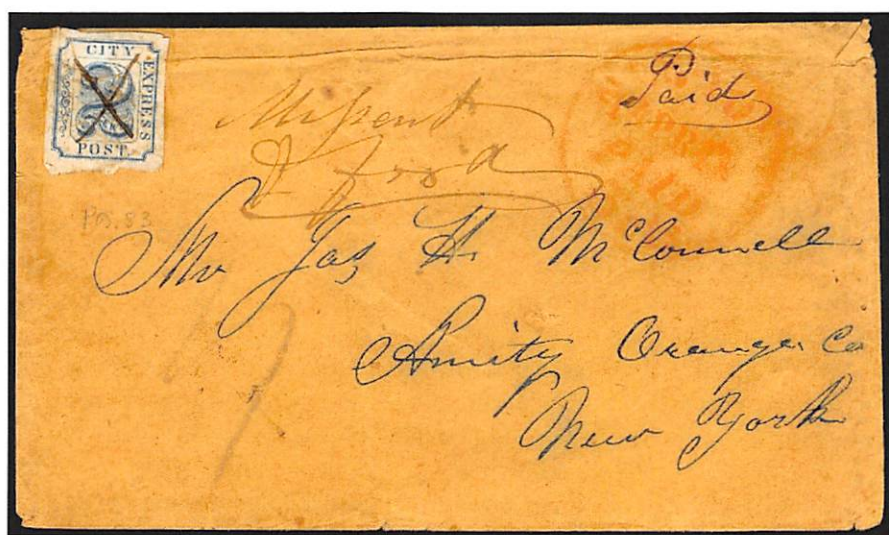 CITY
EXPRESS
POST
2
Paid
Missent
& ford
PAID
Pos. 83
Mr Jas H. McConnell
Amity Orange Co
New York